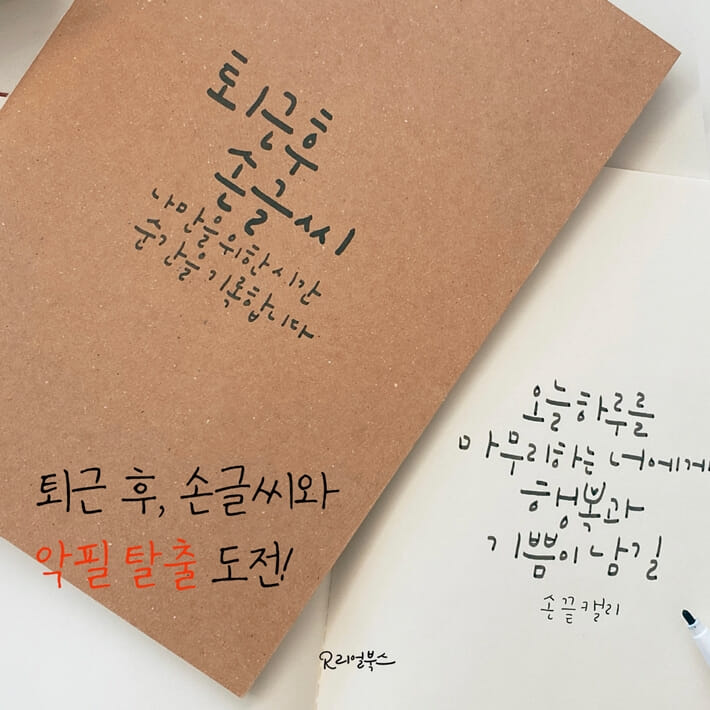 퇴근후
손글씨
나만을위한시간
순간을기록합니다
퇴근 후, 손글씨와
악필 탈출 도전!
오늘하루를
마무리하는 너에게
행복과
기쁨이 남길
손끝캘리
R리얼북스